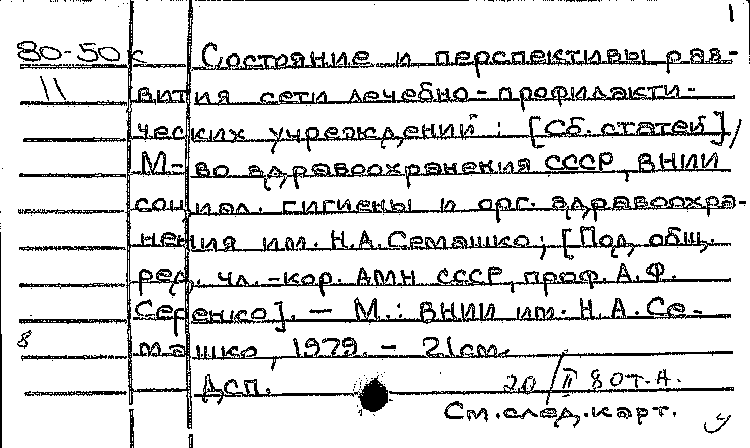 1
80-50 к Состояние и перспективы раз-
11 вития сети лечебно-профилакти-
ческих учреждений : [Сб. статей] /
М-во здравоохранения СССР, ВНИИ
социал. гигиены и орг. здравоохра-
нения им. Н.А.Семашко; [Под общ.
ред. чл.-кор. АМН СССР, проф. А.Ф.
Серенко]. — М.: ВНИИ им. Н.А.Се-
8 машко, 1979. - 21см.
Дсп. 20/II 80т.А.
См.след.карт.